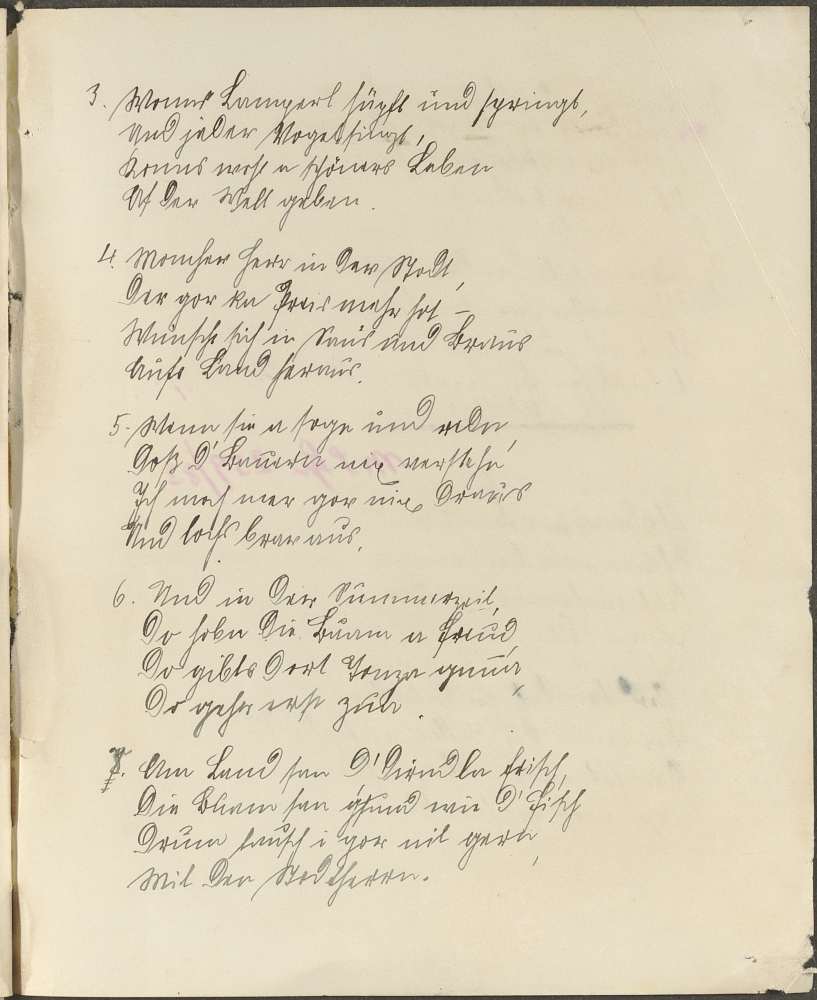 3. Wonns Lamperl hüpft und springt,
Und jeder Vogel singt,
Konns wohl a schöners Leben
Af der Welt geben.
4. Moncher Herr in der Stodt,
Der gor ka Freis mehr hot –
Wünscht sich in Saus und Braus
Aufs Land heraus.
5. Wenn sie a sogn und redn,
Doß d' Bauern nix verstehn
Ich moch mer gor nix draus
Und lochs brav aus.
6. Und in der Summerzeit,
Do hobn die Buam a Freud,
Do gibts dort Tonza gnua,
Do gehts erst zua.
7. Am Land san d' Dirndla frisch,
Die Buam san gsund wie d' Fisch
Drum tausch i gor nit gern,
Mit den Stodtherrn.